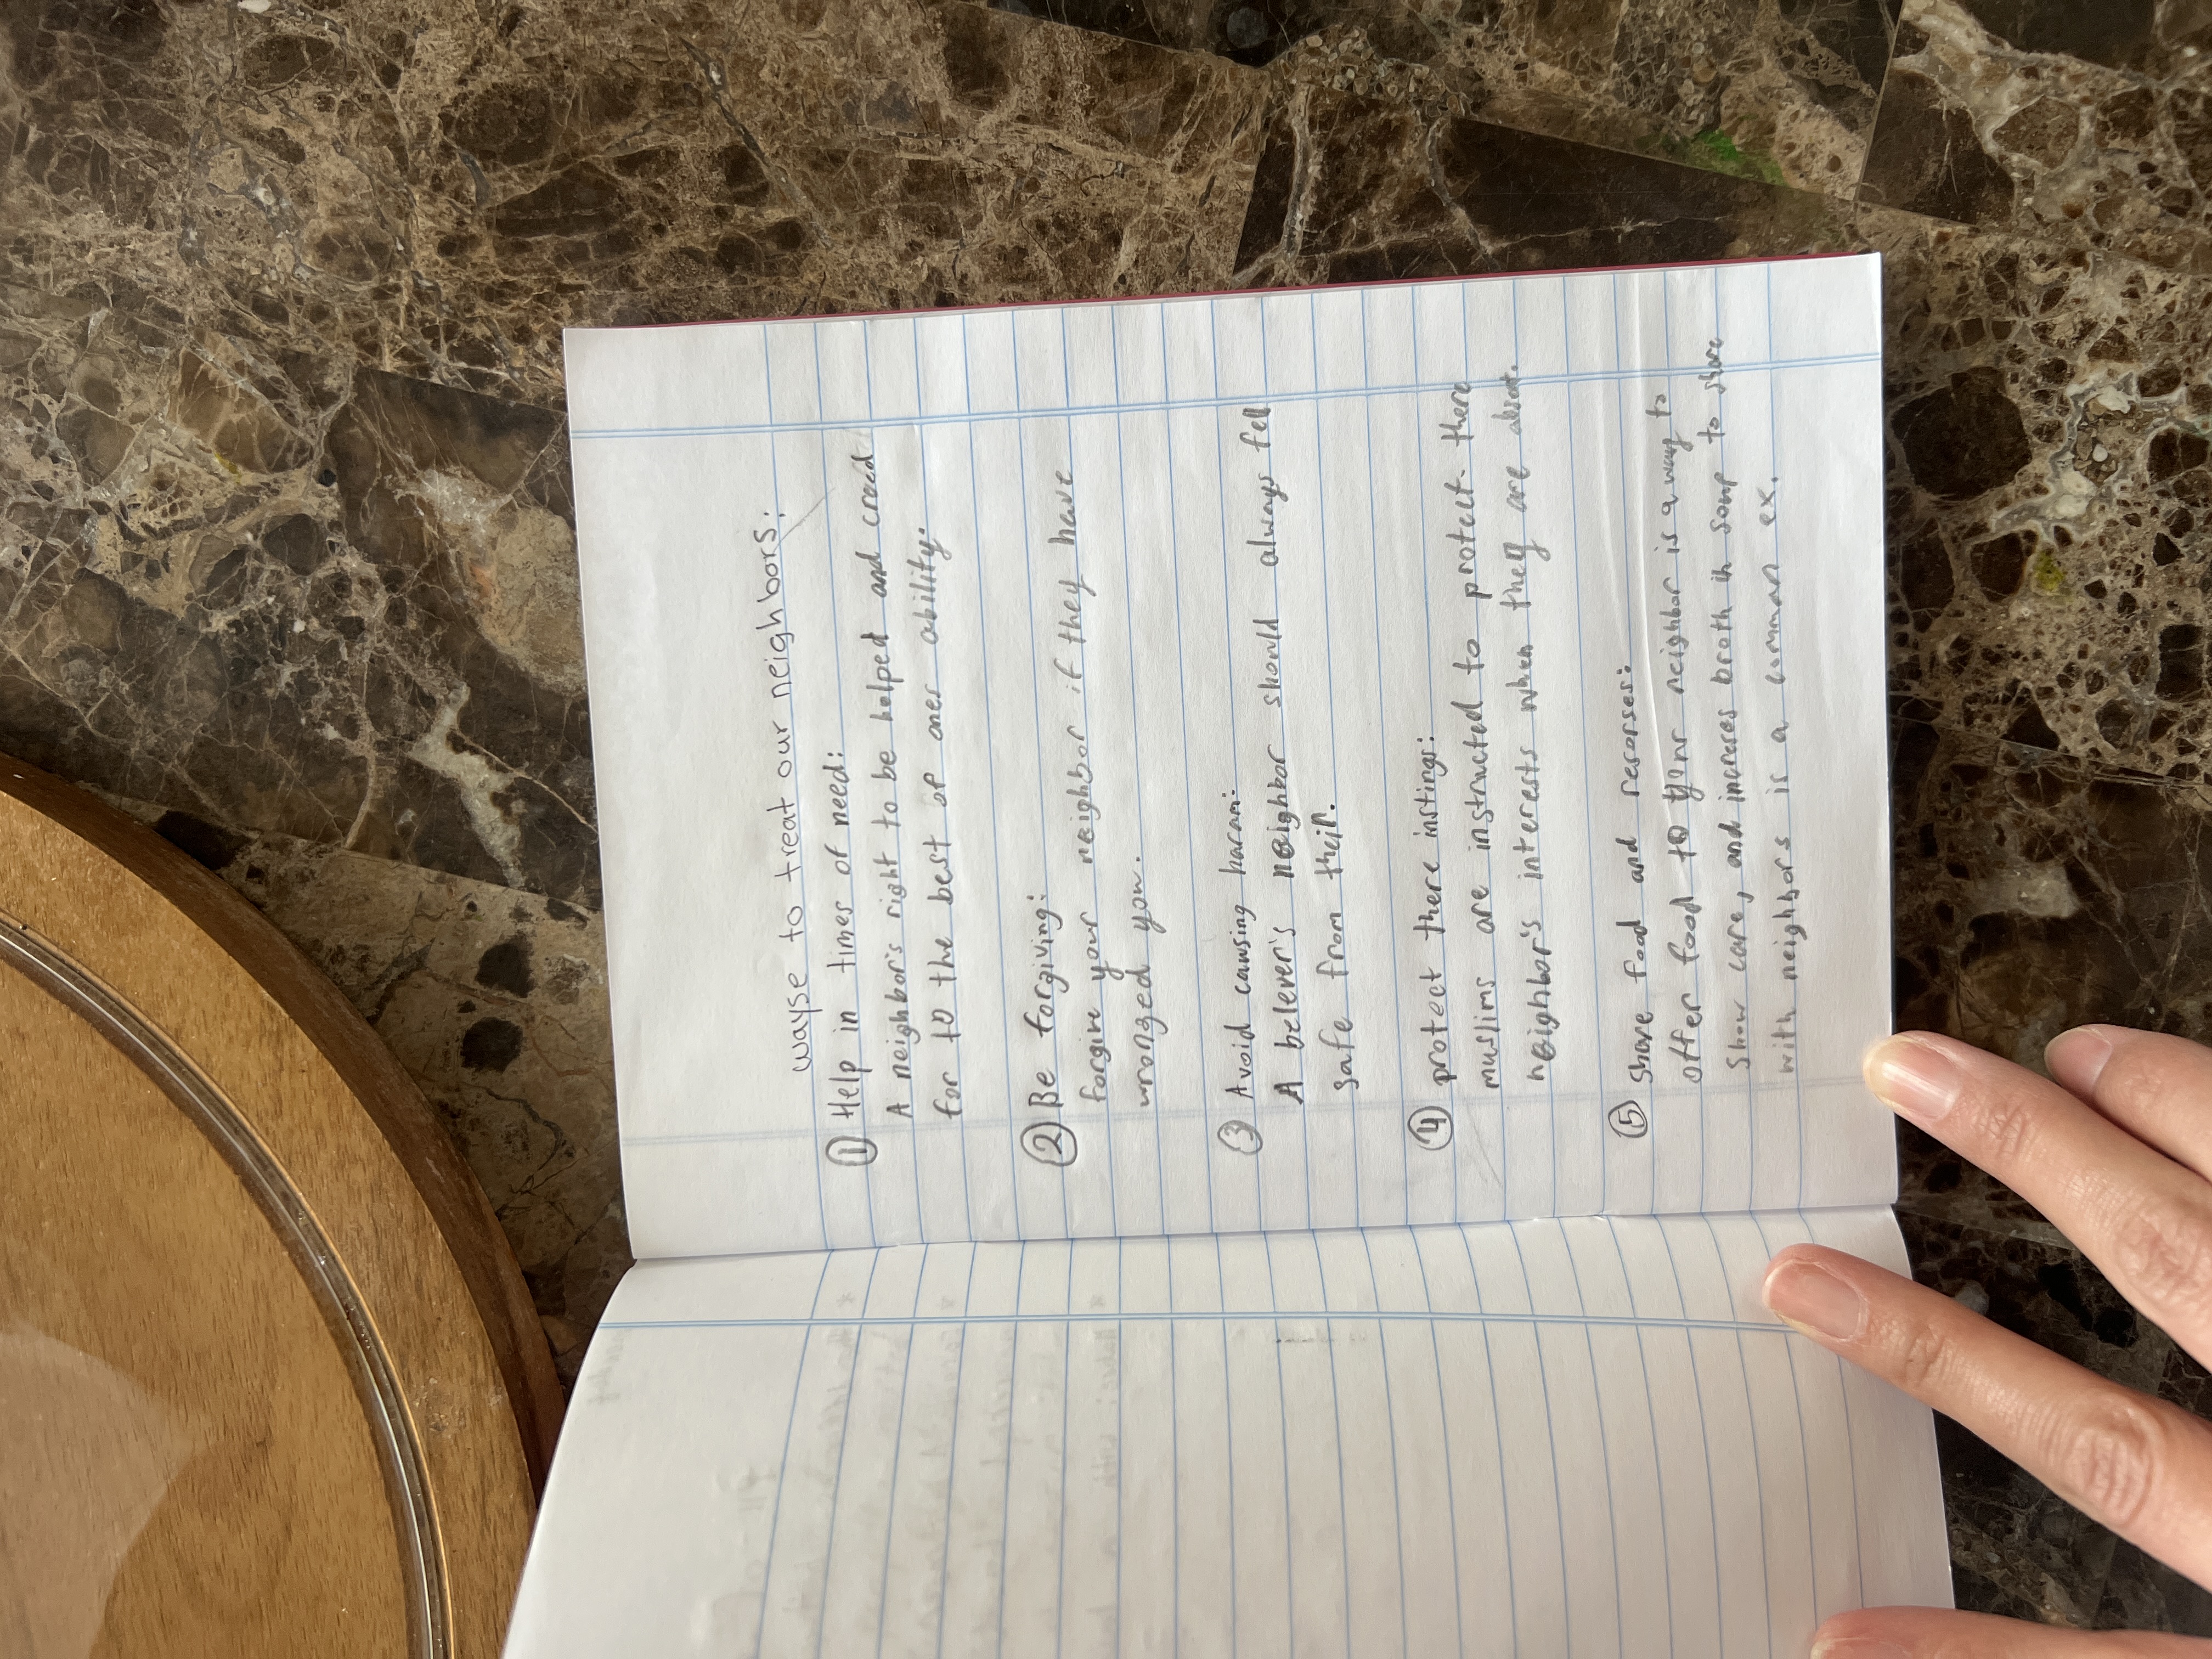 wayse to treat our neighbors:
① Help in times of need:
A neighbor's right to be helped and cread
for to the best of ones ability.
② Be forgiving:
forgive your neighbor if they have
wronged you.
③ Avoid causing haram:
A belever's neighbor should always fell
safe from their.
④ protect there instings:
muslims are instructed to protect there
neighbor's interests when they are absent.
⑤ Share food and resorses:
offer food to your neighbor is a way to
show care, and increses broth in soup to share
with neighbors is a comman ex.